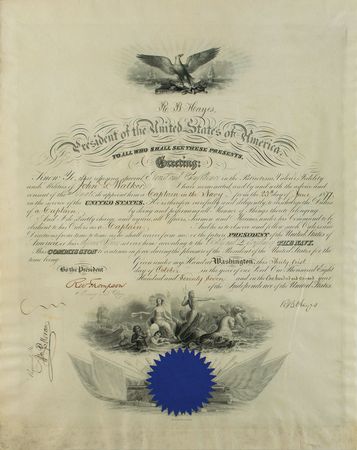 R. B. Hayes,
President of the United States of America,
TO ALL WHO SHALL SEE THESE PRESENTS,
Greeting:
Know Ye, that reposing special Trust and Confidence in the Patriotism, Valor, Fidelity
and Abilities of John G. Walker I have nominated and by and with the advice and
consent of the Senate do appoint him a Captain in the Navy from the 25th of June 1877
in the service of the UNITED STATES. He is therefore carefully and diligently to discharge the Duties
of a Captain by doing and performing all Manner of Things thereto belonging.
And I do strictly charge and require all Officers, Seamen and Marines under his Command to be
obedient to his Orders as a Captain And he is to observe and follow such Orders and
Directions from time to time as he shall receive from me or the future PRESIDENT of the United States of
America, or his Superior Officer set over him, according to the Rules and Discipline of THE NAVY.
This COMMISSION to continue in force during the pleasure of the President of the United States for the
time being.
Given under my Hand at Washington, this Thirty first
day of October in the year of our Lord One Thousand Eight
Hundred and Seventy Seven and in the One hundred and second year
of the Independence of the United States.
By the President
R. W. Thompson
R B Hayes